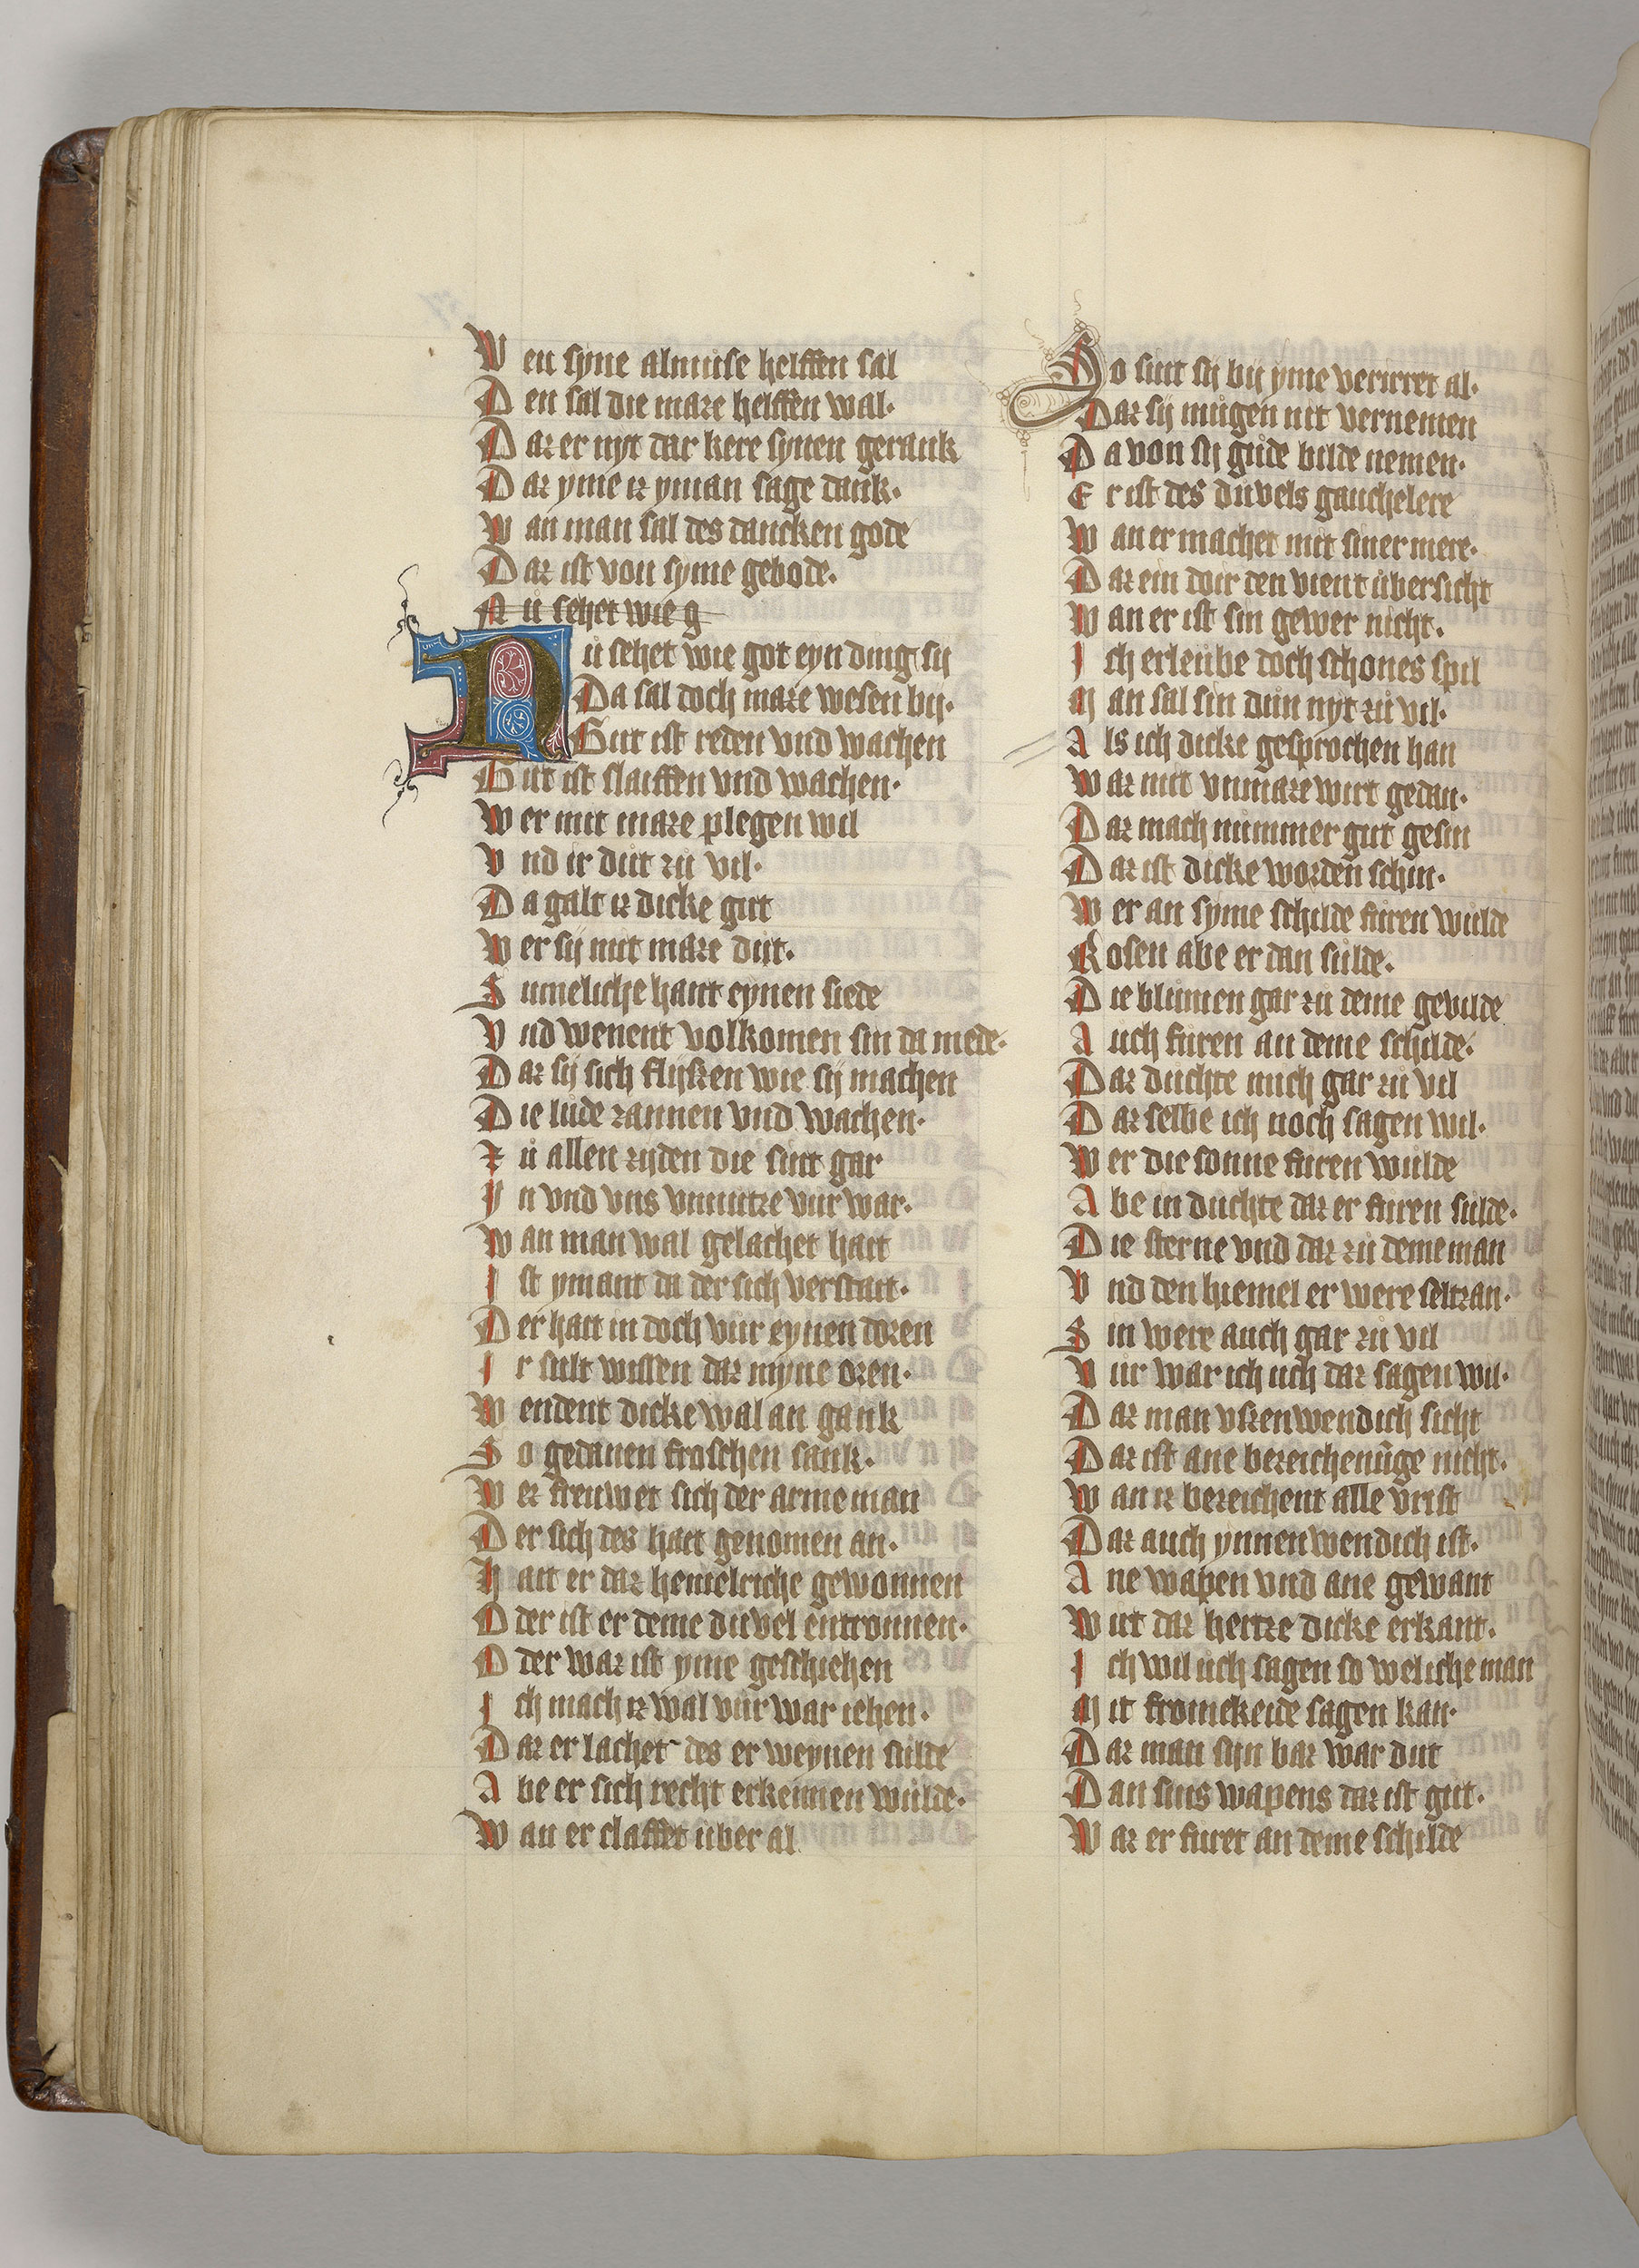 Wen syne almuise helffen sal
Den sal die maze helffen wal·
Daz er nyt dar kere synen gerank
Daz yme iz yman sage dank·
Wan man sal des dancken gode
Daz ist von syme gebode·
Nů sehet wie g
Nů sehet wie got eyn ding sij
Da sal doch maze wesen bij·
Gut ist reden vnd wachen
Gut ist slaiffen vnd wachen·
Wer mit maze plegen wil
Vnd ir důt zů vil·
Da galt iz dicke gut
Wer sij mit maze důt·
Sumeliche hant eynen siede
Vnd wenent volkomen sin da mede·
Daz sij sich flijzen wie sij machen
Die lude zannen vnd wachen·
Zů allen zijden die sint gar
Yn vnd vns vnnutze vur war·
Wan man wal gelachet hatt
Ist ymant da der sich verstatt·
Der hatt in doch vůr eynen doren
Ir sult wissen daz myne oren·
Wendent dicke wal an gank
So gedanen froschen sank·
Wez freuwet sich der arme man
Der sich des hatt genomen an·
Hatt er daz hemelriche gewonnen
Oder ist er deme duvel entronnen·
Oder waz ist yme geschiehen
Ich mach iz wal vůr war iehen·
Daz er lachet des er weynen sulde
Abe er sich recht erkennen wulde·
Wan er claffet uber al
So sint sij bij yme verirret al·
Daz sij můgen nit vernemen
Da von sij gůde bilde nemen·
Er ist des duvels gauchelere
Wan er machet mit siner mere·
Daz ein doir den vient ůbersicht
Wan er ist sin gewer nicht·
Ich erleube doch schones spil
Man sal sin dun nyt zů vil·
Als ich dicke gesprochen han
Waz mit vnmaze wirt gedan·
Daz mach nummer gut gesin
Daz ist dicke worden schin·
Wer an syme schilde furen wulde
Rosen abe er dan sulde·
Die blůmen gar zů deme gevilde
Auch furen an deme schilde·
Daz duchte mich gar zů vil
Daz selbe ich noch sagen wil·
Wer die sonne furen wulde
Abe in duchte daz er furen sulde·
Die sterne vnd dar zů deme man
Vnd den hiemel er were seltzan·
Sin were auch gar zů vil
Vůr war ich uch daz sagen wil·
Daz man vzenwendich sicht
Daz ist ane bezeichenůge nicht·
Wan iz bezeichent alle vrist
Daz auch ynnenwendich ist·
Ane wapen vnd ane gewant
Wirt daz hertze dicke erkant·
Ich wil ůch sagen so weliche man
Mit fromekeide sagen kan·
Daz man syn baz war dut
Dan sins wapens daz ist gut·
Waz er furet an deme schilde